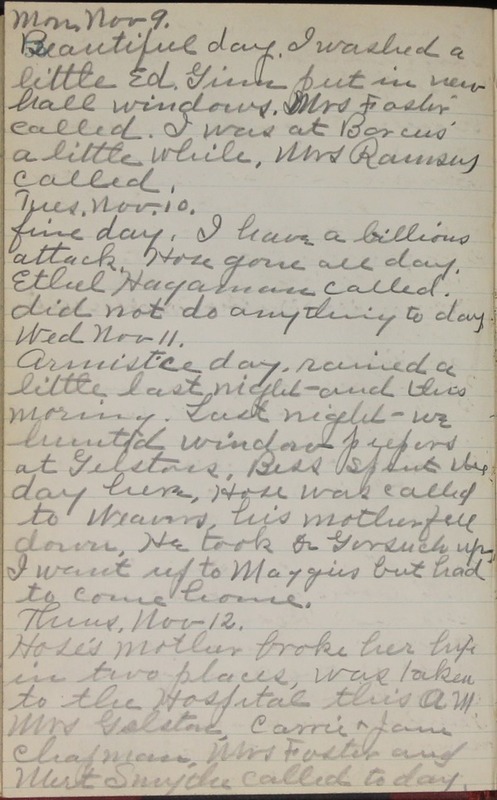 Mon, Nov 9.
Beautiful day. I washed a
little Ed. Ginn put in new
hall windows. Mrs Foster
called. I was at Barcus'
a little while, Mrs Ramsey
called.
Tues, Nov. 10.
fine day. I have a billious
attack. Hose gone all day.
Ethel Hagaman called.
did not do anything to day.
Wed Nov 11.
Armistice day, rained a
little last night and this
morning. Last night - we
hunted window peepers
at Gelstons, Bess spent the
day here, Hose was called
to Weavers, his mother fell
down, He took Dr Gorsuch up,
I want up to Maggies but had
to come home.
Thurs, Nov 12.
Hose's mother broke her hip
in two places, was taken
to the Hospital this A M.
Mrs Gelston, Carrie + Jane
Chapman, Mrs Foster and
Mert Smythe called to day.